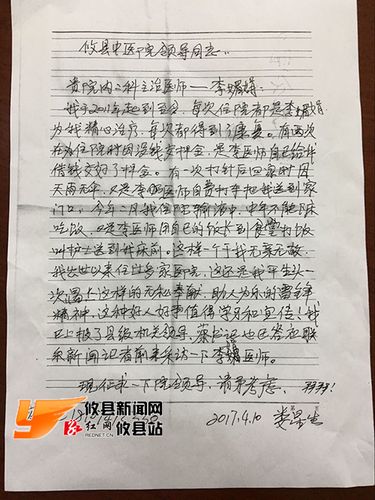 攸县中医院领导同志:
贵院内二科主治医师——李媚娟
我于2011年起到至今，每次住院都是李媚娟
为我精心治疗，每次都得到了康复。有两次
在为住院时因没钱交押金，是李医师自己给我
借钱交好了押金。有一次打针后回家时因
天雨无伞，又是李医师自费打车把我送到家
门口，今年二月我住院输液中，中午不能下床
吃饭，又是李医师用自己的饭卡到食堂打饭
叫护士送到我床前。这样一个于我无亲无故
我出生以来住过多家医院，这还是我平生头
次遇上这样的无私奉献，助人为乐的雷锋
精神，这种好人好事值得学习和宣传！我
已上报了县级机关领导，蔡书记也已答应联
系新闻记者前来采访一下李媚医师。
现征求一下院领导，请来考虑。 
2017.4.10 娄
攸县新闻网
红网 攸县站
REDNET.CN